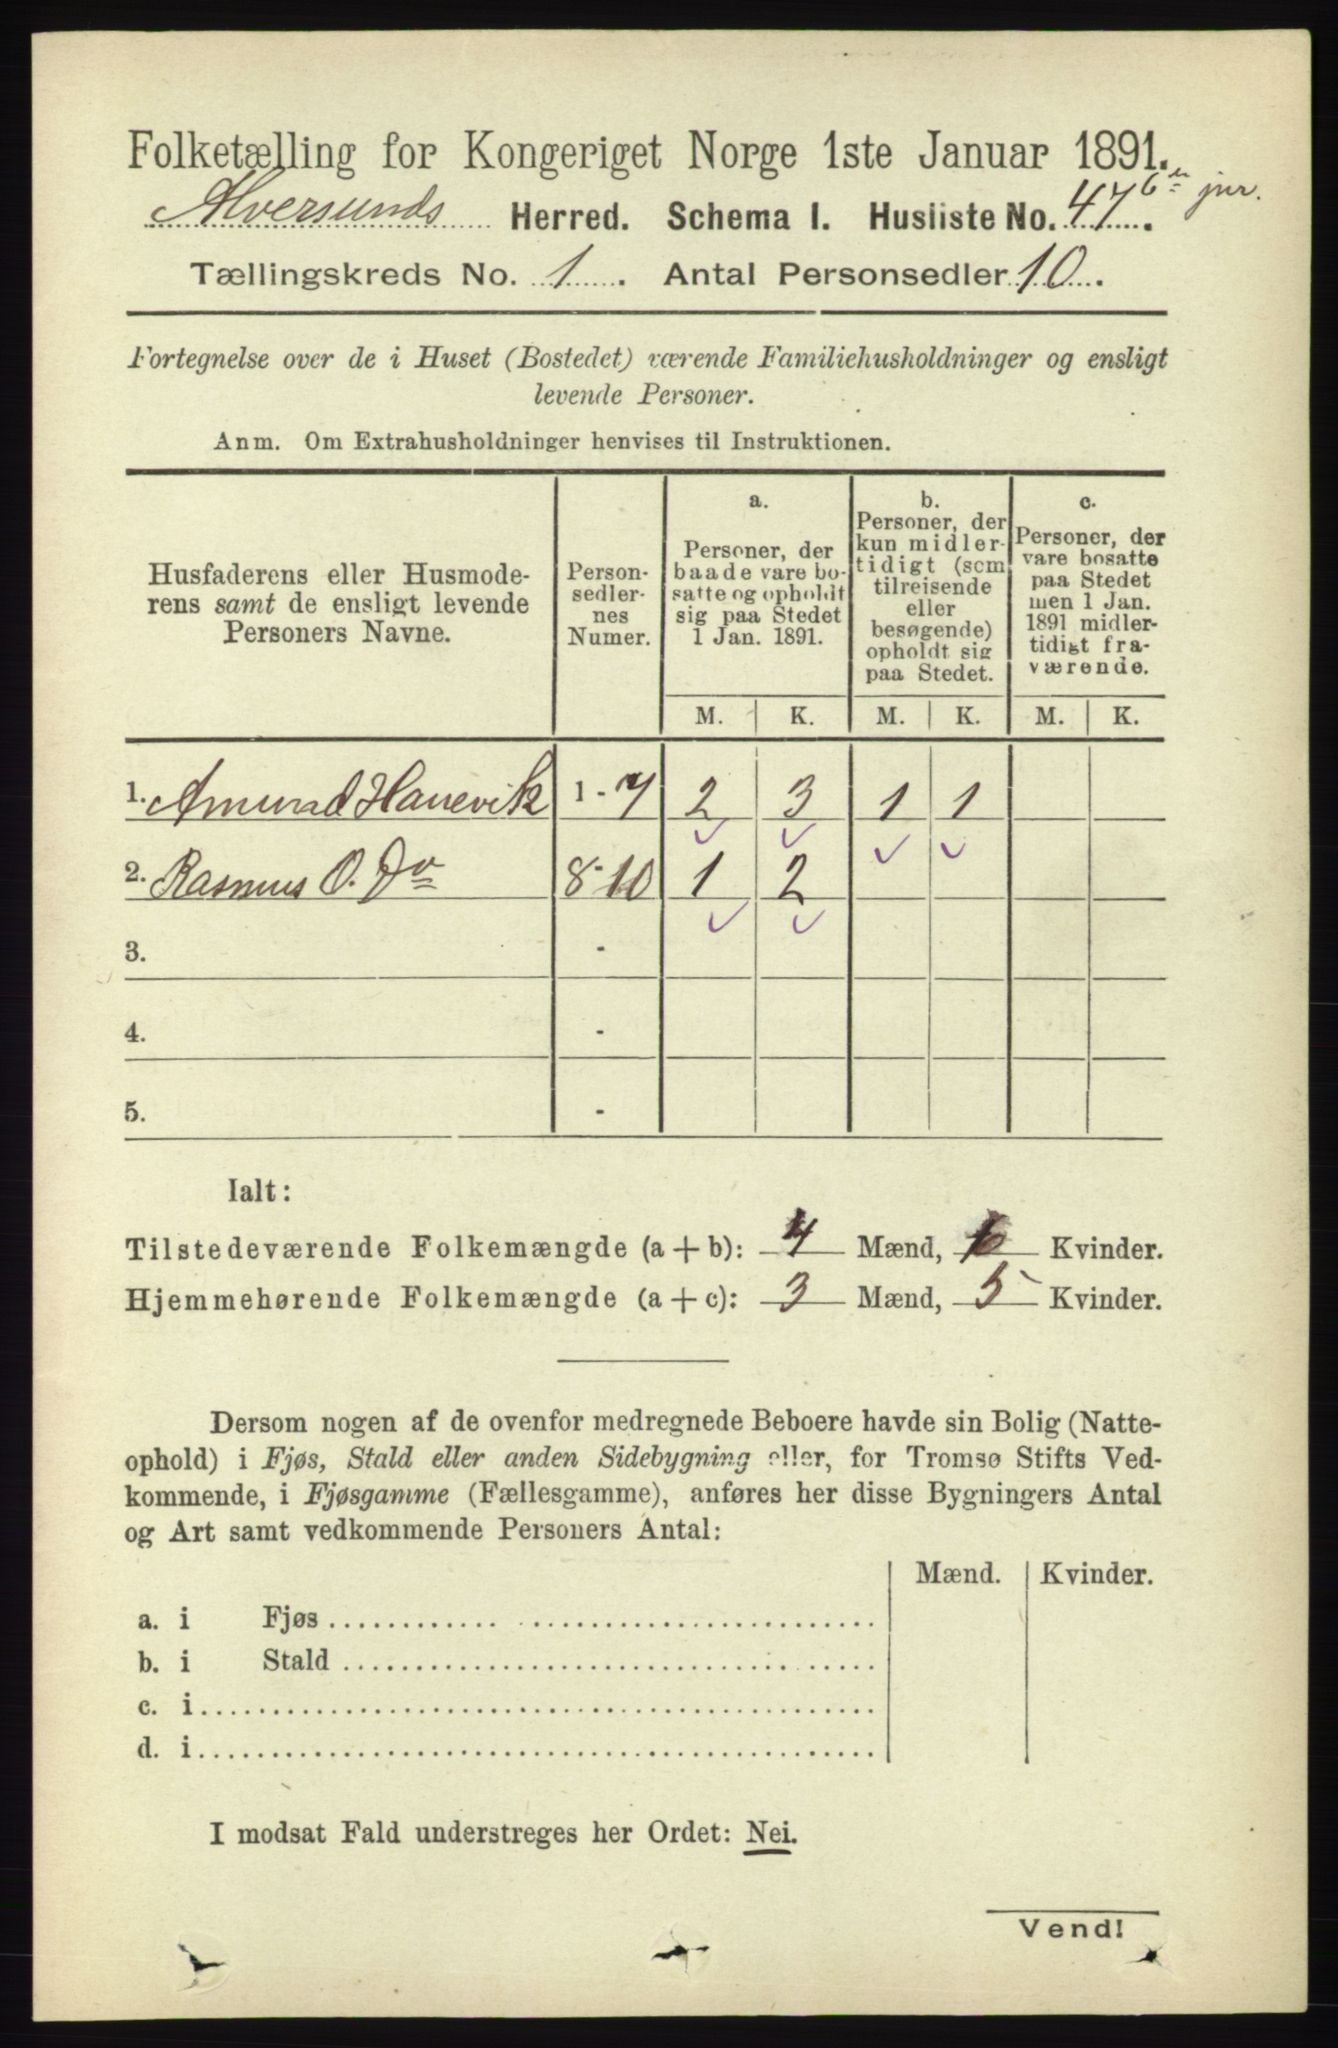 Folketælling for Kongeriget Norge 1ste Januar 1891.
Alversunds Herred. Schema I. Husliste No. 47
Tællingskreds No. 1. Antal Personsedler 10.
Fortegnelse over de i Huset (Bostedet) værende Familiehusholdninger og ensligt
levende Personer.
Anm. Om Extrahusholdninger henvises til Instruktionen.
Husfaderens eller Husmode-
rens samt de ensligt levende
Personers Navne.
Person-
sedler-
nes
Numer.
a.
Personer, der
baade vare bo-
satte og opholdt
sig paa Stedet
1 Jan. 1891.
b.
Personer, der
kun midler-
tidigt (som
tilreisende
eller
besøgende)
opholdt sig
paa Stedet.
c.
Personer, der
vare bosatte
paa Stedet
men 1 Jan.
1891 midler-
tidigt fra-
værende.
M. K. M. K. M. K.
1. Amund Hanevik 1 - 7 2 3 1 1
2. Rasmus O. Do 8 - 10 1 2
3. -
4. -
5. -
Ialt:
Tilstedeværende Folkemængde (a + b): 4 Mænd, 6 Kvinder.
Hjemmehørende Folkemængde (a + c): 3 Mænd, 5 Kvinder.
Dersom nogen af de ovenfor medregnede Beboere havde sin Bolig (Natte-
ophold) i Fjøs, Stald eller anden Sidebygning eller, for Tromsø Stifts Ved-
kommende, i Fjøsgamme (Fællesgamme), anføres her disse Bygningers Antal
og Art samt vedkommende Personers Antal:
Mænd. Kvinder.
a. i Fjøs
b. i Stald
c. i
d. i
I modsat Fald understreges her Ordet: Nei.
Vend!